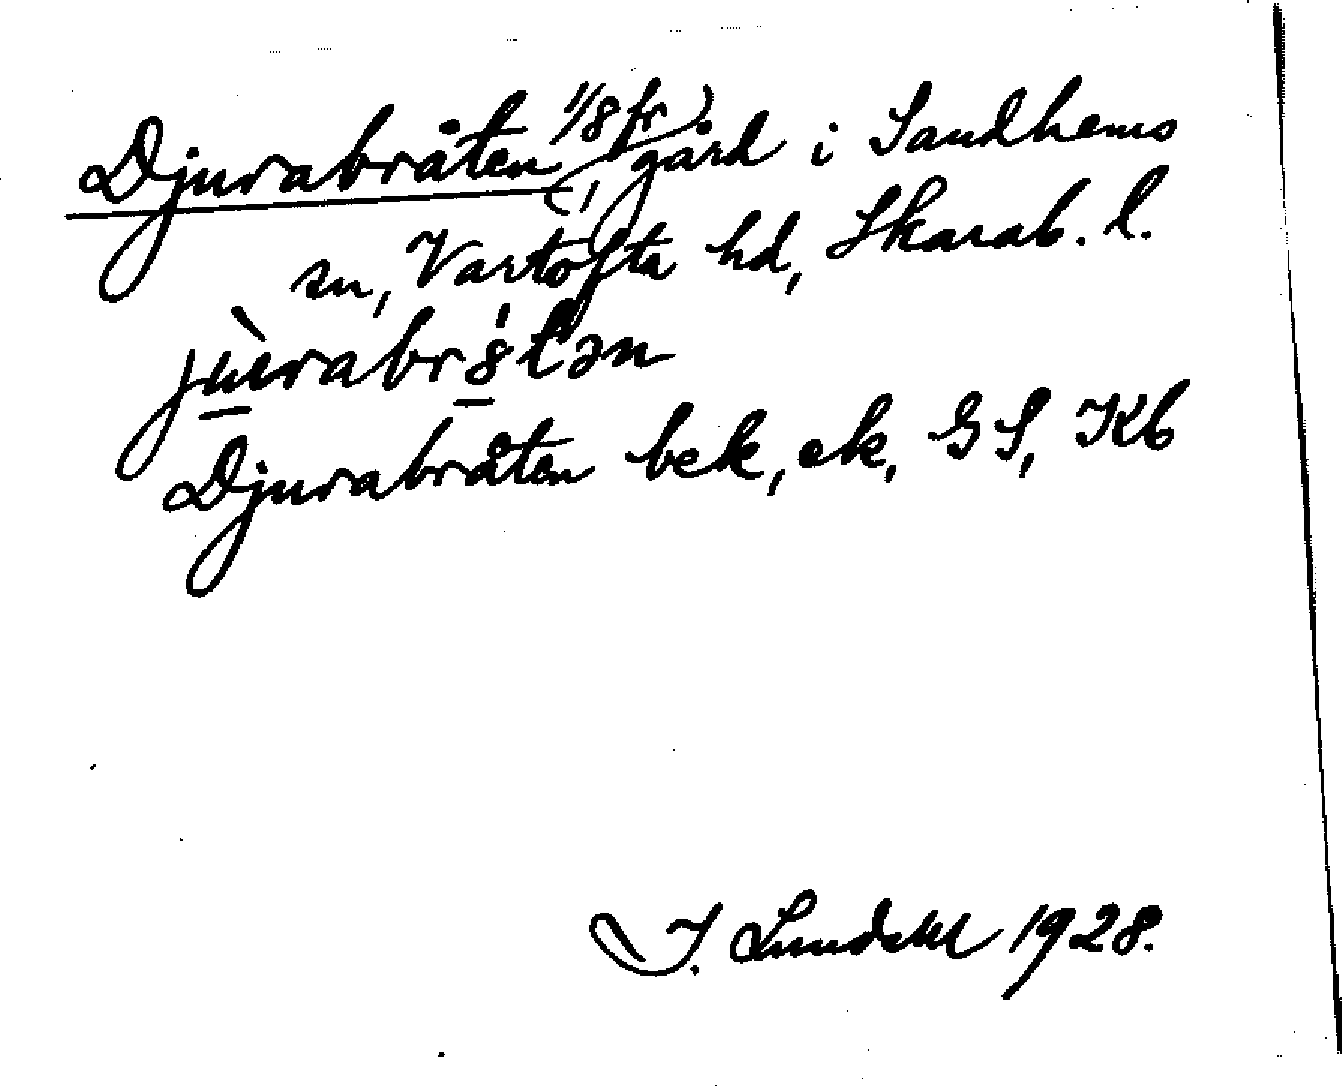 Djurabråten, (1/8 fr) gård i Sandhems
sn, Vartofta hd, Skarab. l.
Djurabråten bek, ek, GS, Kb
I. Lundahl 1928.